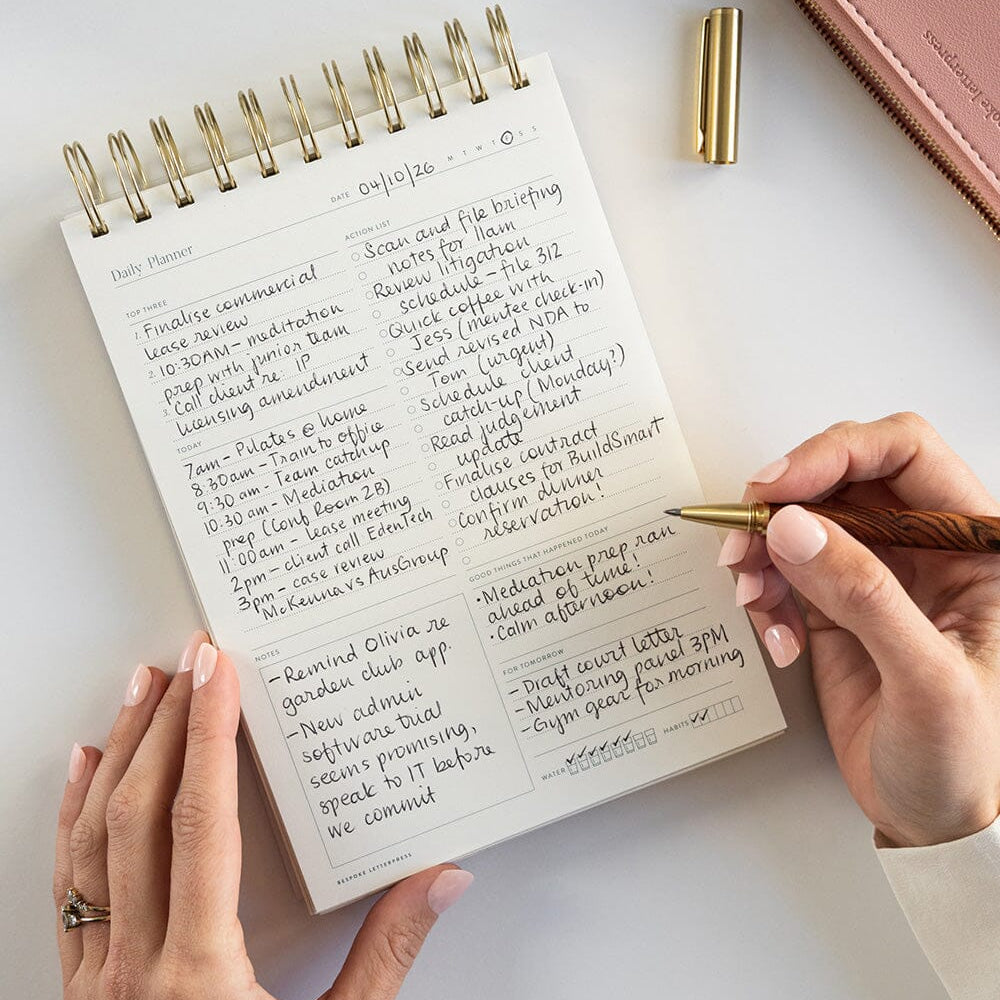 DATE 04/10/26 M T W T F S S
Daily Planner
TOP THREE
1. Finalise commercial
lease review
2. 10:30AM – meditation
prep with junior team
3. Call client re: IP
licensing amendment
TODAY
7am – Pilates @ home
8.30am – Train to office
9:30 am – Team catchup
10:30 am – Mediation
prep (Conf Room 2B)
11:00am – lease meeting
2pm – client call EdenTech
3pm – case review
McKenna vs AusGroup
ACTION LIST
Scan and file briefing
notes for 11am
Review litigation
schedule – file 312
Quick coffee with
Jess (mentee check-in)
Send revised NDA to
Tom (urgent)
Schedule client
catch-up (Monday?)
Read judgement
update
Finalise contract
clauses for BuildSmart
Confirm dinner
reservation!
GOOD THINGS THAT HAPPENED TODAY
• Mediation prep ran
ahead of time!
• Calm afternoon!
NOTES
– Remind Olivia re
garden club app.
– New admin
software trial
seems promising,
speak to IT before
we commit
FOR TOMORROW
– Draft court letter
– Mentoring panel 3PM
– Gym gear for morning
WATER ✓✓✓✓✓✓ HABITS ✓✓
BESPOKE LETTERPRESS
spoke letterpress